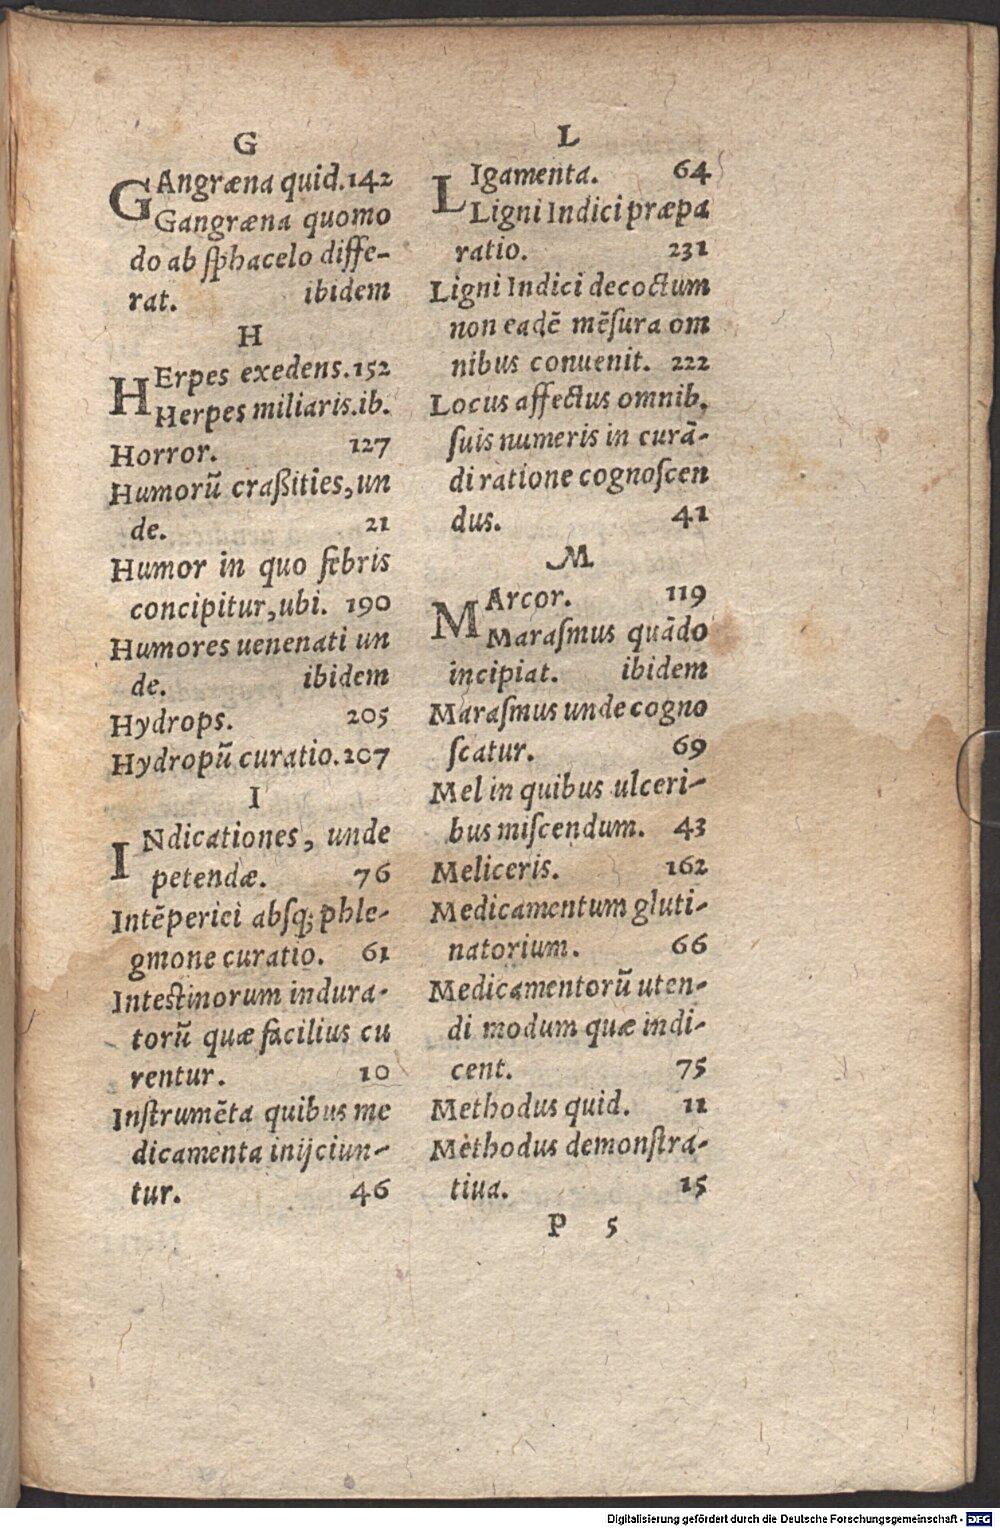 G
GAngræna quid. 142
Gangræna quomo
do ab sphacelo diffe-
rat. ibidem
H
HErpes exedens. 152
Herpes miliaris. ib.
Horror. 127
Humorũ craßities, un
de. 21
Humor in quo febris
concipitur, ubi. 190
Humores uenenati un
de. ibidem
Hydrops. 205
Hydropũ curatio. 207
I
INdicationes, unde
petendæ. 76
Intẽperiei absq; phle-
gmone curatio. 61
Intestinorum indura-
torũ quæ facilius cu
rentur. 10
Instrumẽta quibus me
dicamenta inijciun-
tur. 46
L
LIgamenta. 64
Ligni Indici præpa
ratio. 231
Ligni Indici decoctum
non eadẽ mẽsura om
nibus conuenit. 222
Locus affectus omnib.
suis numeris in curã-
di ratione cognoscen
dus. 41
M
MArcor. 119
Marasmus quãdo
incipiat. ibidem
Marasmus unde cogno
scatur. 69
Mel in quibus ulceri-
bus miscendum. 43
Meliceris. 162
Medicamentum gluti-
natorium. 66
Medicamentorũ uten-
di modum quæ indi-
cent. 75
Methodus quid. 11
Methodus demonstra-
tiua. 15
P 5
Digitalisierung gefördert durch die Deutsche Forschungsgemeinschaft - DFG